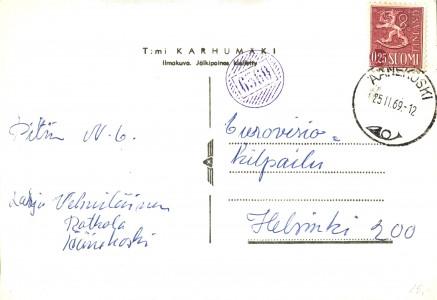 T:mi KARHUMÄKI
Ilmakuva. Jälkipainos kielletty
6569
0,25 SUOMI
FINLAND
ÄÄNEKOSKI
25.11.69-12
Pidän N-6.
Eurovisio-
kilpailu
Helsinki 200
Vehniläinen
Ratkola
Äänekoski
15,-